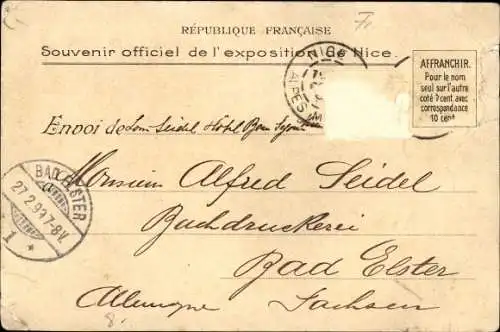 RÉPUBLIQUE FRANÇAISE
Souvenir officiel de l'exposition de Nice.
AFFRANCHIR.
Pour le nom
seul sur l'autre
coté ? cent. avec
correspondance
10 cent.
NICE
Envoi de Seidel Hôtel Beau Séjour
Monsieur Alfred Seidel
Buchdruckerei
Bad Elster
Allemagne Sachsen
BAD ELSTER
27 2 99 7-8V.
1 *
8.
7.